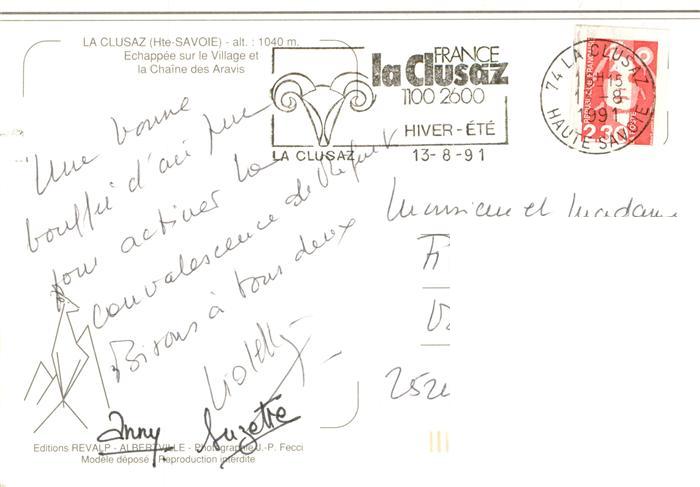 LA CLUSAZ (Hte-SAVOIE) - alt. : 1040 m.
Echappée sur le Village et
la Chaîne des Aravis
FRANCE
la Clusaz
1100 2600
HIVER - ÉTÉ
LA CLUSAZ 13-8-91
74 LA CLUSAZ
15H
1991
HAUTE SAVOIE
2.30
Une bonne
bouffée d'air pur
pour activer la
convalescence de
Bisous à tous deux
Anny Suzette
Monsieur et Madame
252
Editions REVALP - ALBERTVILLE - Photographie J.-P. Fecci
Modèle déposé - Reproduction interdite